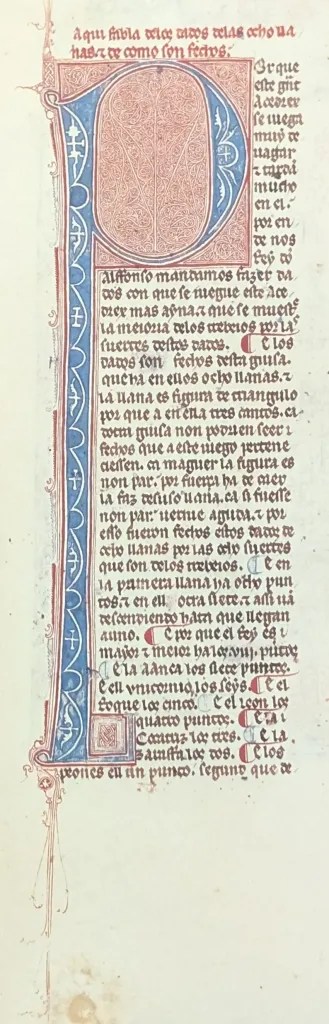 Aqui fabla delos dados delas ocho lla
nas. ⁊ de como son fechos.
Por que
este grãt
Acedrex
se iuega
muy de
uagar
⁊ tarda
mucho
en el.
por en
de nos
Rey dõ
Alffonso mandamos fazer da
dos con que se iuegue este Ace
drex mas ayna. ⁊ que se muestrẽ
la meioria delos trebeios por las
suertes destos dados. ¶ E los
dados son fechos desta guisa.
que ha en ellos ocho llanas. ⁊
la llana es figura de triangulo
por que a en ella tres cantos. ca
dotra guisa non podrien seer
fechos que a este iuego pertene
ciessen. ca maguer la figura es
non par. por fuerça ha de caer
la faz desuso llana. ca si fuesse
non par. uernie aguda. ⁊ por
esso fueron fechos estos dados de
ocho llanas por las ocho suertes
que son delos trebeios. ¶ E en
la primera llana ha ocho pun
tos. ⁊ en la otra siete. ⁊ assi uã
descendiendo fata que llegan
a uno. ¶ E por que el Rey es
mayor ⁊ meior ha los .viij. puntos
¶ E la aanca los siete puntos.
¶ E el unicornio. los seys. ¶ E el
Roque los cinco. ¶ E el Leon los
quatro puntos. ¶ E la
Cocatriz los tres. ¶ E la
Zaraffa los dos. ¶ E los
peones el un punto. segund que de